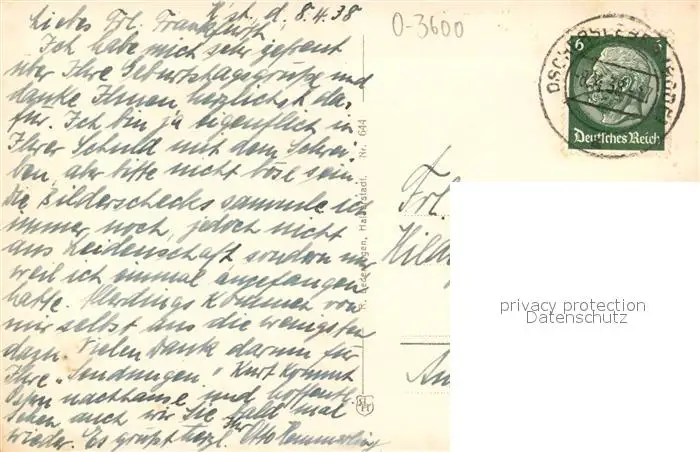 H. st. d. 8.4.38
Liebes Frl. Frankfurth,
Ich habe mich sehr gefreut
über Ihre Geburtstagsgrüße und
danke Ihnen herzlichst da-
für. Ich bin ja eigentlich in
Ihrer Schuld mit dem Schrei-
ben, aber bitte nicht böse sein.
Die Bilderschecks sammle ich
immer noch, jedoch nicht
aus Leidenschaft sondern nur
weil ich einmal angefangen
hatte. Allerdings kommen von
mir selbst aus die wenigsten
dazu. Vielen Dank darum für
Ihre "Sendungen". Kurt kommt
Ostern nachhause und hoffentl.
sehen auch wir Sie bald mal
wieder. Es grüßt herzl. Ihr Otto Hemmerling
0-3600
6
Deutsches Reich
Nr. 644
Halberstadt.
Frl.
Hild
privacy protection
Datenschutz